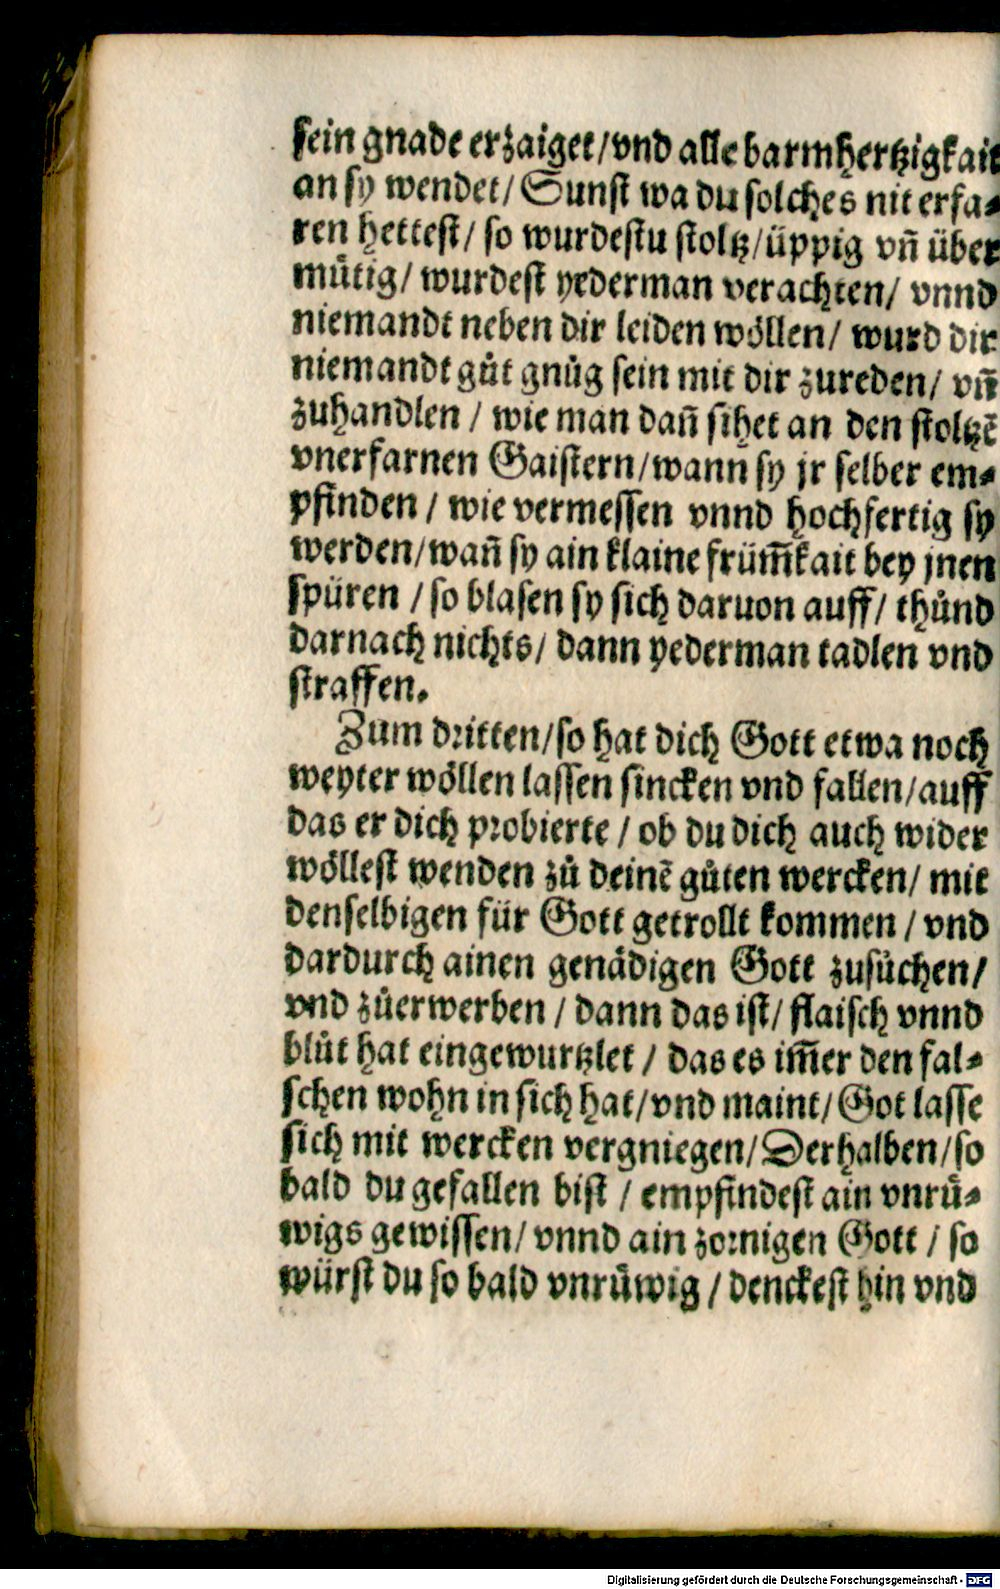 sein gnade erzaiget/vnd alle barmhertzigkait
an sy wendet/ Sunst wa du solches nit erfa⸗
ren hettest/ so wurdestu stoltz/üppig vñ über
mütig/ wurdest yederman verachten/ vnnd
niemandt neben dir leiden wöllen/ wurd dir
niemandt gůt gnůg sein mit dir zureden/ vñ
zuhandlen / wie man dañ sihet an den stoltzẽ
vnerfarnen Gaistern/wann sy jr selber em⸗
pfinden / wie vermessen vnnd hochfertig sy
werden/wañ sy ain klaine früm̃kait bey jnen
spüren / so blasen sy sich daruon auff/ thůnd
darnach nichts/ dann yederman tadlen vnd
straffen.
Zum dritten/so hat dich Gott etwa noch
weyter wöllen lassen sincken vnd fallen/auff
das er dich probierte / ob du dich auch wider
wöllest wenden zů deinẽ gůten wercken/ mit
denselbigen für Gott getrollt kommen / vnd
dardurch ainen genädigen Gott zusůchen/
vnd zůerwerben / dann das ist/ flaisch vnnd
blůt hat eingewurtzlet / das es im̃er den fal⸗
schen wohn in sich hat/vnd maint/Got lasse
sich mit wercken vergniegen/Derhalben/so
bald du gefallen bist / empfindest ain vnrů⸗
wigs gewissen/ vnnd ain zornigen Gott / so
würst du so bald vnrůwig / denckest hin vnd
Digitalisierung gefördert durch die Deutsche Forschungsgemeinschaft - DFG